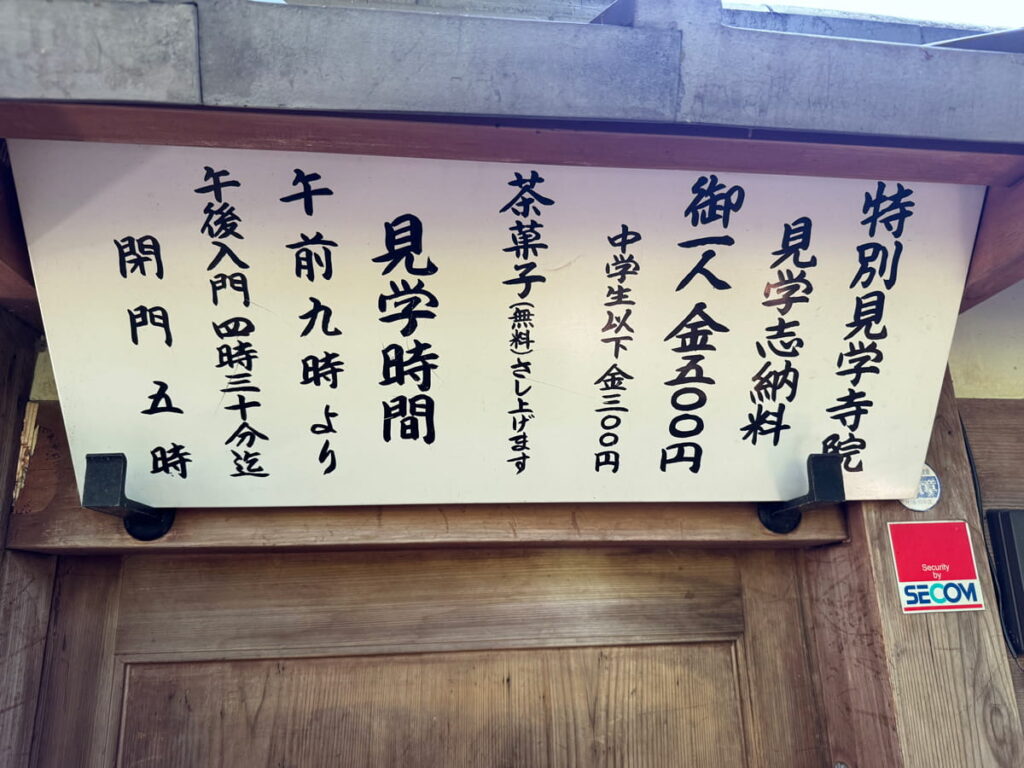 特別見学寺院
見学志納料
御一人金五〇〇円
中学生以下金三〇〇円
茶菓子(無料)さし上げます
見学時間
午前九時より
午後入門四時三十分迄
閉門五時
Security
by
SECOM